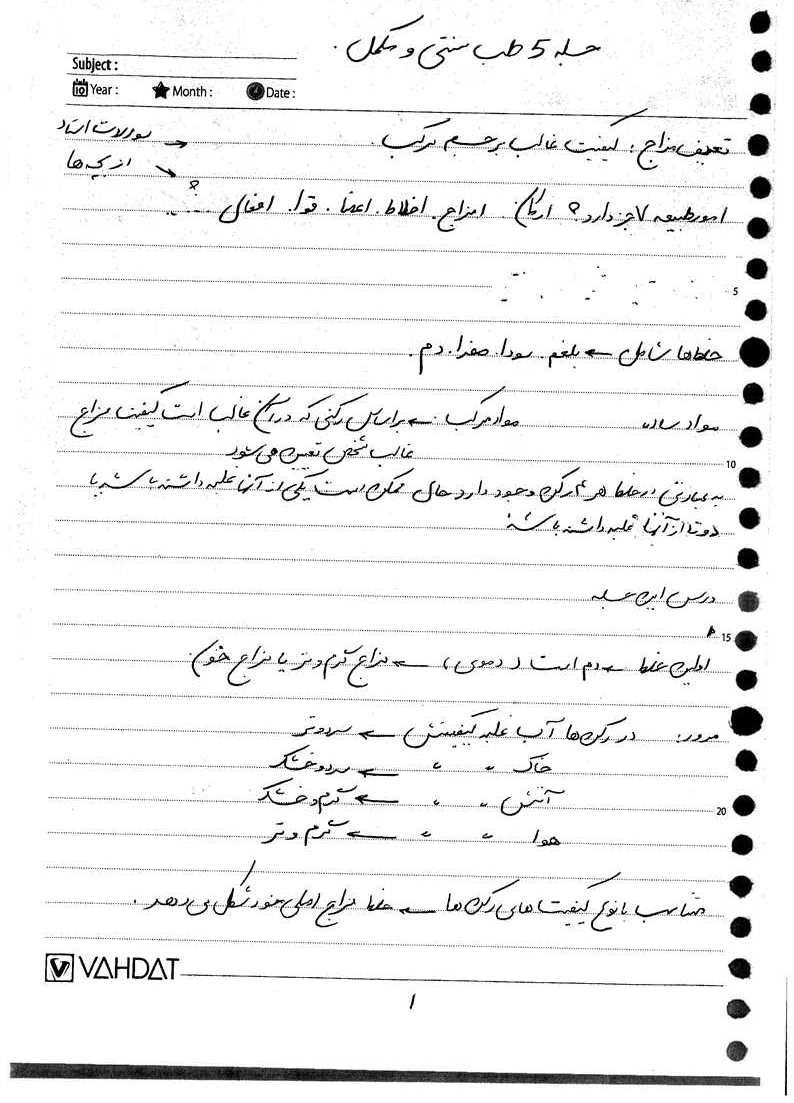 جلسه 5 طب سنتی و مکمل.
Subject :
Year : Month : Date :
تعریف مزاج : کیفیت غالب بر جسم مرکب. ← سوالات استاد
از بچه ها
امور طبیعه ۷ جز دارد؟ ارکان. امزاج. اخلاط. اعضا. قوا. افعال ....؟
5
خلط ها شامل ← بلغم. سودا. صفرا. دم.
مواد ساده مواد مرکب ← براساس رکنی که در آن غالب است کیفیت مزاج
غالب شخص تعیین می شود
10
به عبارتی در خلط هر ۴ رکن وجود دارد حال ممکن است یکی از آنها غلبه داشته باشد یا
دوتا از آنها غلبه داشته باشد
درس این جلسه
15
اولین خلط ← دم است (دموی) ← مزاج گرم و تر یا مزاج خون
مرور: در رکن ها آب غلبه کیفیتش ← سرد و تر
خاک " " ← سرد و خشک
آتش " " ← گرم و خشک
20
هوا " " ← گرم و تر
متناسب با نوع کیفیت های رکن ها ← خلط مزاج اصلی خود شکل می دهد.
VAHDAT
۱